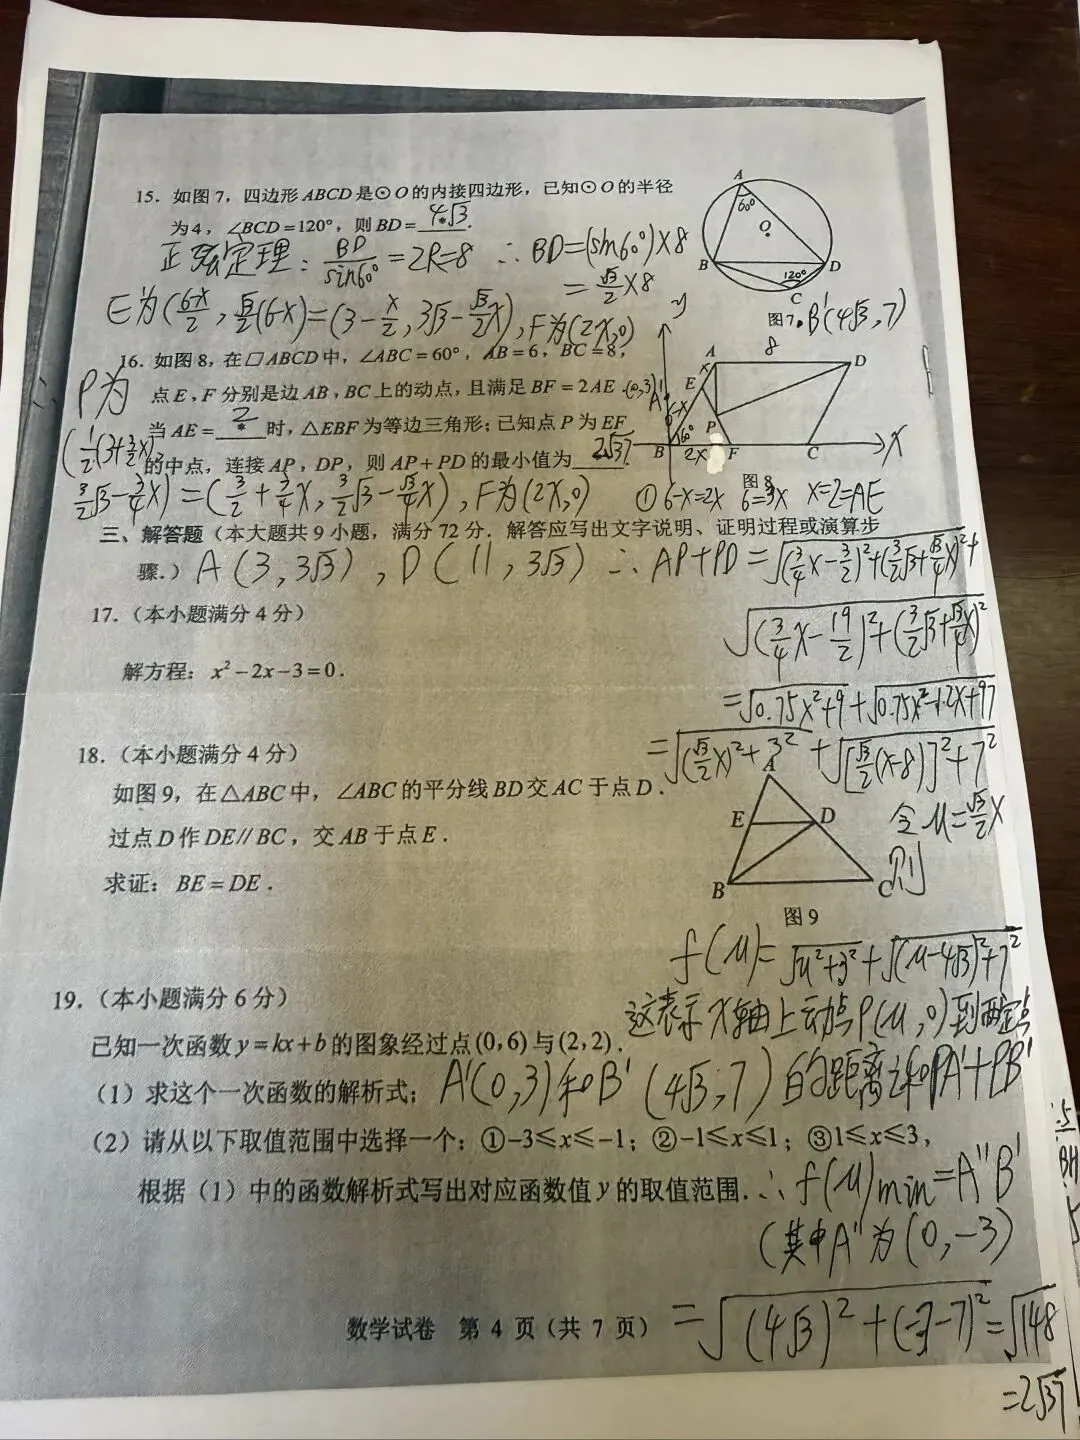 15. 如图7，四边形ABCD是⊙O的内接四边形，已知⊙O的半径
为4，∠BCD=120°，则BD=4√3.
正弦定理：BD/sin60°=2R=8 ∴BD=(sin60°)×8
=√3/2×8
A
60°
O
B
D
120°
C
图7
B'(4√3,7)
E为(6-x/2, √3/2(6-x))=(3-x/2, 3√3-√3/2x), F为(2x,0)
16. 如图8，在□ABCD中，∠ABC=60°，AB=6，BC=8，
点E，F分别是边AB，BC上的动点，且满足BF=2AE.
当AE=2时，△EBF为等边三角形；已知点P为EF
的中点，连接AP，DP，则AP+PD的最小值为2√37.
y
8
A
D
x
E
(0,3)A'
6-x
P
60°
B
2x
F
C
X
图8
P为
(1/2(3+3/2x),
3/2√3-√3/4x)=(3/2+3/4x, 3/2√3-√3/4x), F为(2x,0) ①6-x=2x 6=3x x=2=AE
三、解答题（本大题共9小题，满分72分．解答应写出文字说明、证明过程或演算步
骤.）
A(3,3√3), D(11,3√3) ∴AP+PD=√((3/4x-3/2)²+(3/2√3+√3/4x)²)+
√((3/4x-19/2)²+(3/2√3+√3/4x)²)
=√(0.75x²+9)+√(0.75x²-12x+97)
=√((√3/2x)²+3²)+√([√3/2(x-8)]²+7²)
令u=√3/2x
则
17.（本小题满分4分）
解方程：x²-2x-3=0.
18.（本小题满分4分）
如图9，在△ABC中，∠ABC的平分线BD交AC于点D.
过点D作DE//BC，交AB于点E.
求证：BE=DE.
A
E
D
B
C
图9
f(u)=√(u²+3²)+√((u-4√3)²+7²)
这表示x轴上动点P(u,0)到两定点
A'(0,3)和B'(4√3,7)的距离之和PA'+PB'
19.（本小题满分6分）
已知一次函数y=kx+b的图象经过点(0,6)与(2,2).
（1）求这个一次函数的解析式；
（2）请从以下取值范围中选择一个：①-3≤x≤-1；②-1≤x≤1；③1≤x≤3，
根据（1）中的函数解析式写出对应函数值y的取值范围.
∴f(u)min=A''B'
(其中A''为(0,-3)
=√((4√3)²+(-3-7)²)=√148
=2√37
数学试卷 第4页（共7页）